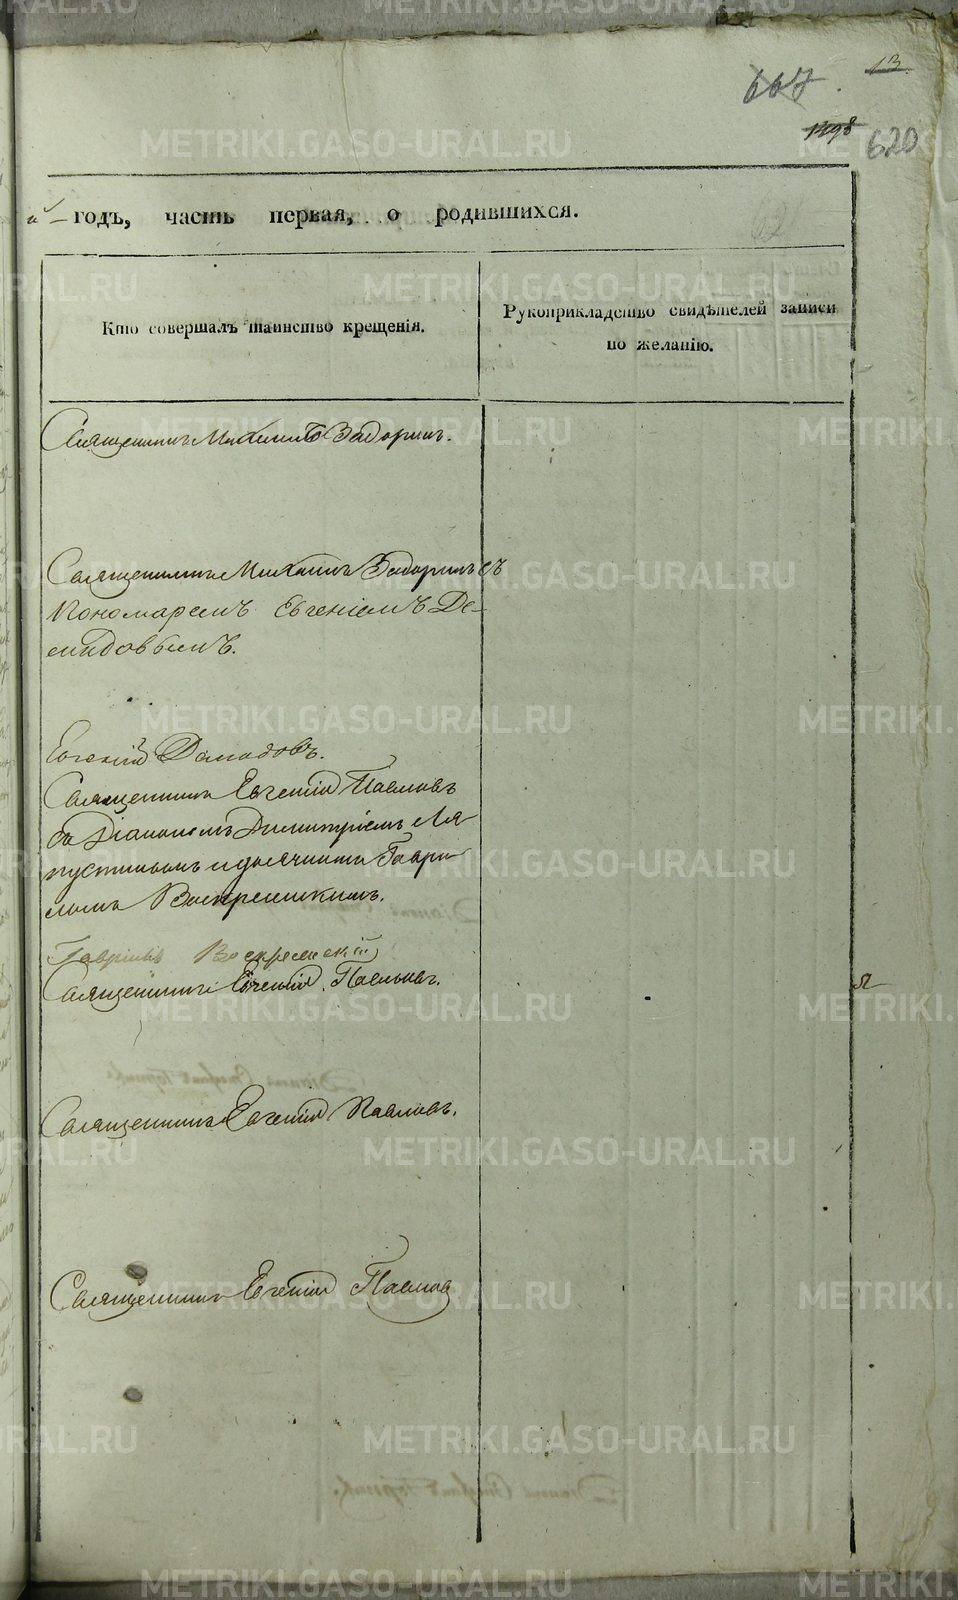 13.
667.
1298
620
й годъ, часть первая, о родившихся.
Кто совершалъ таинство крещенія.
Рукоприкладство свидѣтелей записи
по желанію.
Священникъ Михаилъ Задоринъ.
Священникъ Михаилъ Задоринъ съ
Пономаремъ Евгеніемъ Де-
мидовымъ.
Евгеній Демидовъ.
Священникъ Евгеній Павловъ
съ Діакономъ Димитріемъ Ля
пустинымъ и дьячкомъ Гаври
ломъ Воскресенскимъ.
Гавріилъ Воскресенскій
Священникъ Евгеній Павловъ.
Священникъ Евгеній Павловъ.
Священникъ Евгеній Павловъ
METRIKI.GASO-URAL.RU